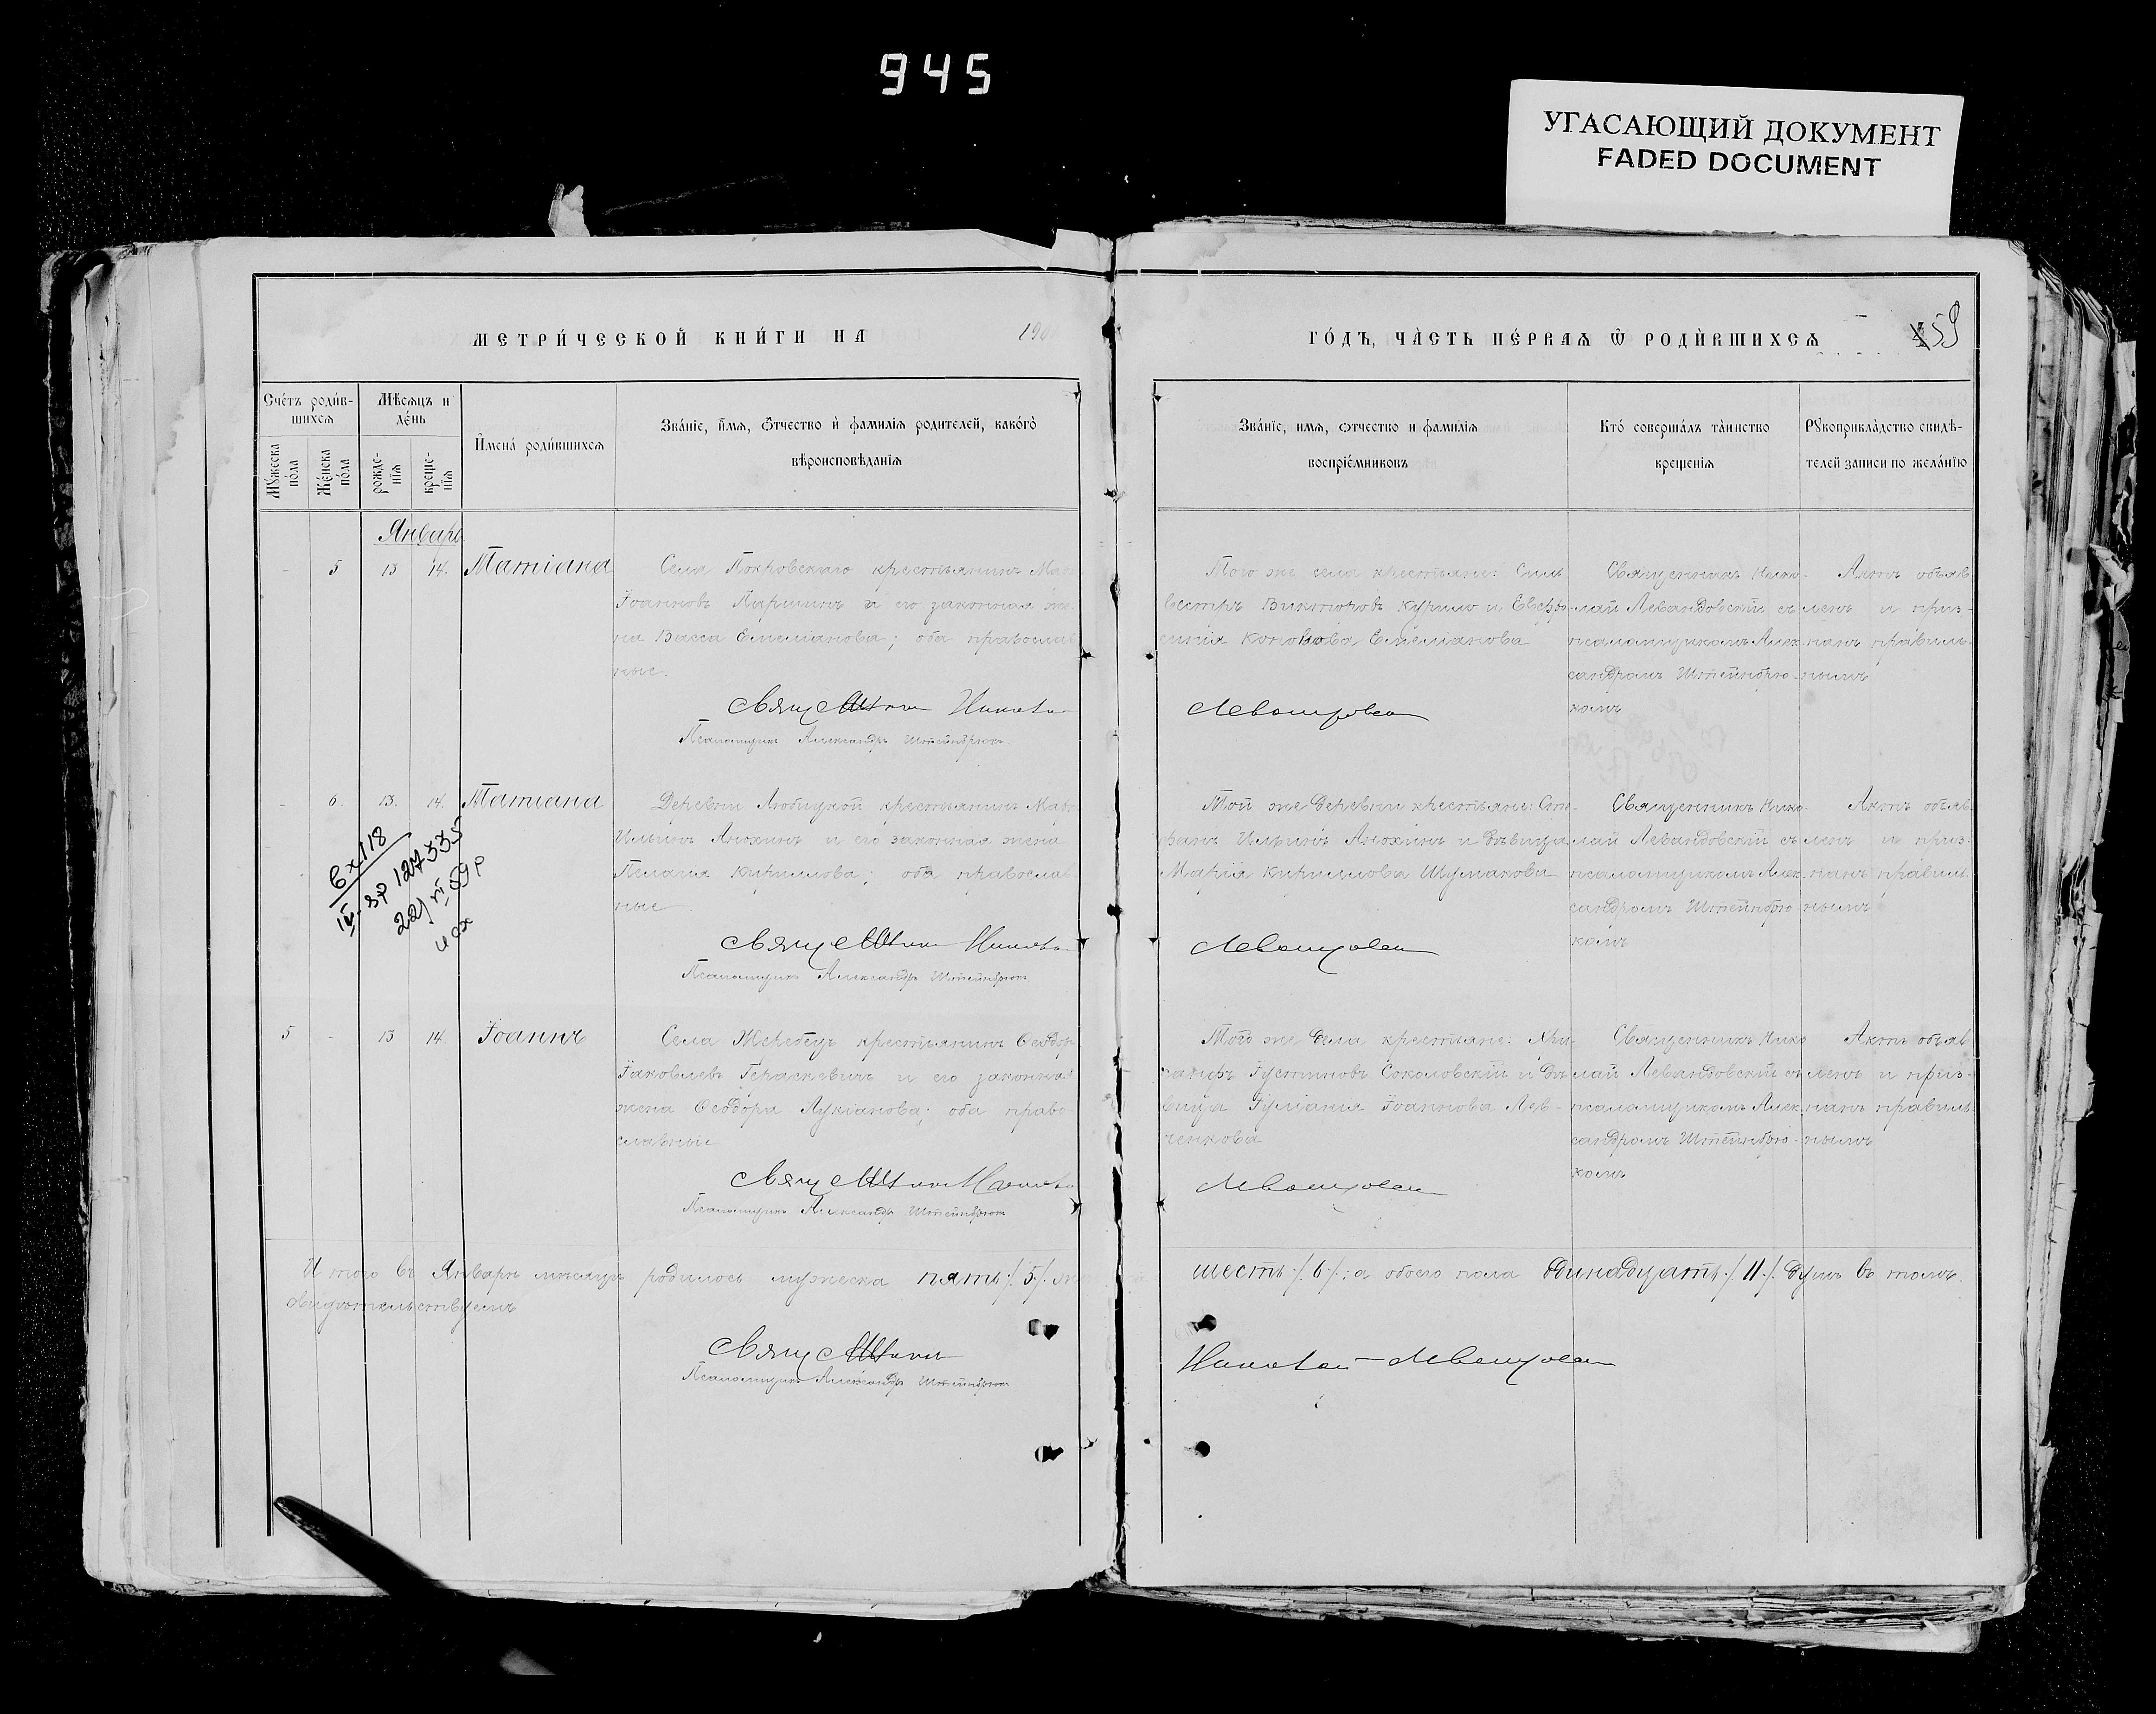 945
УГАСАЮЩИЙ ДОКУМЕНТ
FADED DOCUMENT
МЕТРИ́ЧЕСКОЙ КНИ́ГИ НА 190
ГО́ДЪ, ЧА́СТЬ ПЕ́РВАѦ Ѿ РОДИ́ВШИХСѦ
59
Сче́тъ роди́в-
шихсѧ
Мѣ́сѧцъ и
де́нь
Мꙋ́жеска
по́ла
Же́нска
по́ла
рожде-
нїѧ
креще-
нїѧ
И҆мена̀ роди́вшихсѧ
Зва́нїе, и҆́мѧ, ѻ҆́тчество и҆ фами́лїѧ роди́телей, како́гѡ
вѣроисповѣ́данїѧ
Зва́нїе, имѧ, ѻтчество и фами́лїѧ
воспрїе́мниковъ
Кто́ соверша́лъ та́инство
креще́нїѧ
Рꙋкоприкла́дство свидѣ́-
телей записи по жела́нїю
Январь
- 5 13 14. Татіана
Села Покровскаго крестьянинъ
Іоанновъ Паршинъ и его законная же-
на Васса Емеліанова; оба православ
ные.
Священникъ Никола
Псаломщикъ Александръ Штейнбрюкъ.
Того же села крестьяне: Силь-
вестръ Викторовъ Курило и Евфро-
синія Кононова Емеліанова
Левандовскій
Священникъ Нико-
лай Левандовскій съ
псаломщикомъ Алек-
сандромъ Штейнбрю-
комъ
Актъ объяв-
ленъ и приз-
нанъ правиль-
нымъ
- 6. 13. 14. Татіана
Деревни Любицкой крестьянинъ
Ильинъ Анохинъ и его законная жена
Пелагія Кириллова; оба православ
ные.
Священникъ Никола
Псаломщикъ Александръ Штейнбрюкъ
Той же деревни крестьяне: Сте-
фанъ Ильинъ Анохинъ и дѣвица
Марія Кириллова Шумакова
Левандовскій
Священникъ Нико-
лай Левандовскій съ
псаломщикомъ Алек-
сандромъ Штейнбрю-
комъ
Актъ объяв
ленъ и приз-
нанъ правиль-
нымъ
5 - 13 14. Іоаннъ
Села Жеребецъ крестьянинъ Ѳеодоръ
Іаковлевъ Гераскевичъ и его законная
жена Ѳеодора Лукіанова; оба право
славные
Священникъ Никола
Псаломщикъ Александръ Штейнбрюкъ
Того же села крестьяне:
Іустиновъ Соколовскій и дѣ-
вица Іуліанія Іоаннова Лев-
ченкова
Левандовскій
Священникъ Нико
лай Левандовскій съ
псаломщикомъ Алек
сандромъ Штейнбрю-
комъ
Актъ объяв
ленъ и приз-
нанъ правиль-
нымъ
Итого въ Январѣ мѣсяцѣ родилось мужеска пять /.5/.
шесть ./.6./.; а обоего пола одинадцать ./.11./. душъ въ томъ
свидѣтельствуемъ
Священникъ
Николай Левандовскій
Псаломщикъ Александръ Штейнбрюкъ